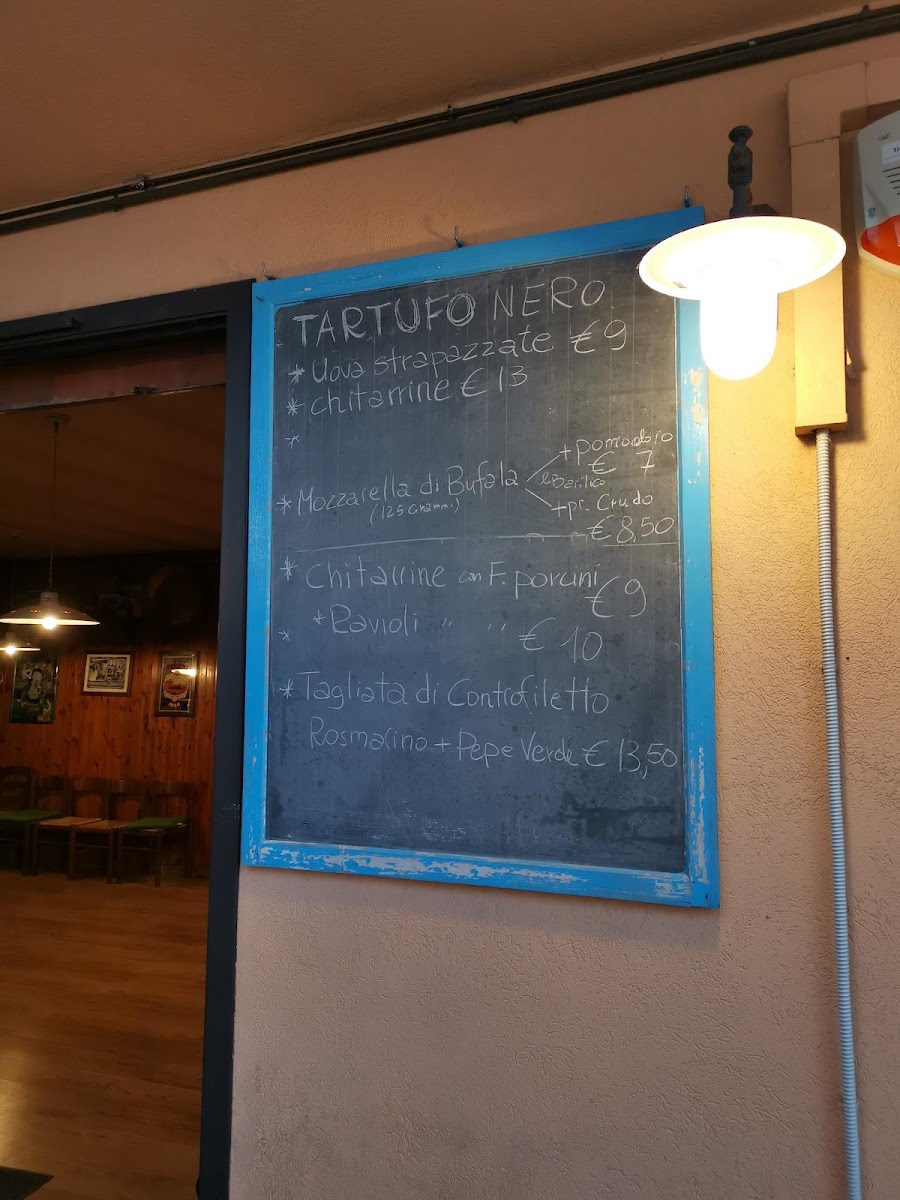 TARTUFO NERO
* Uova strapazzate € 9
* chitarrine € 13
*
+ pomodoro
€ 7
* Mozzarella di Bufala
e Basilico
(125 Grammi)
+ pr. Crudo
€ 8,50
* Chitarrine con F. porcini
€ 9
* Ravioli " "
* € 10
* Tagliata di Controfiletto
Rosmarino + Pepe Verde € 13,50